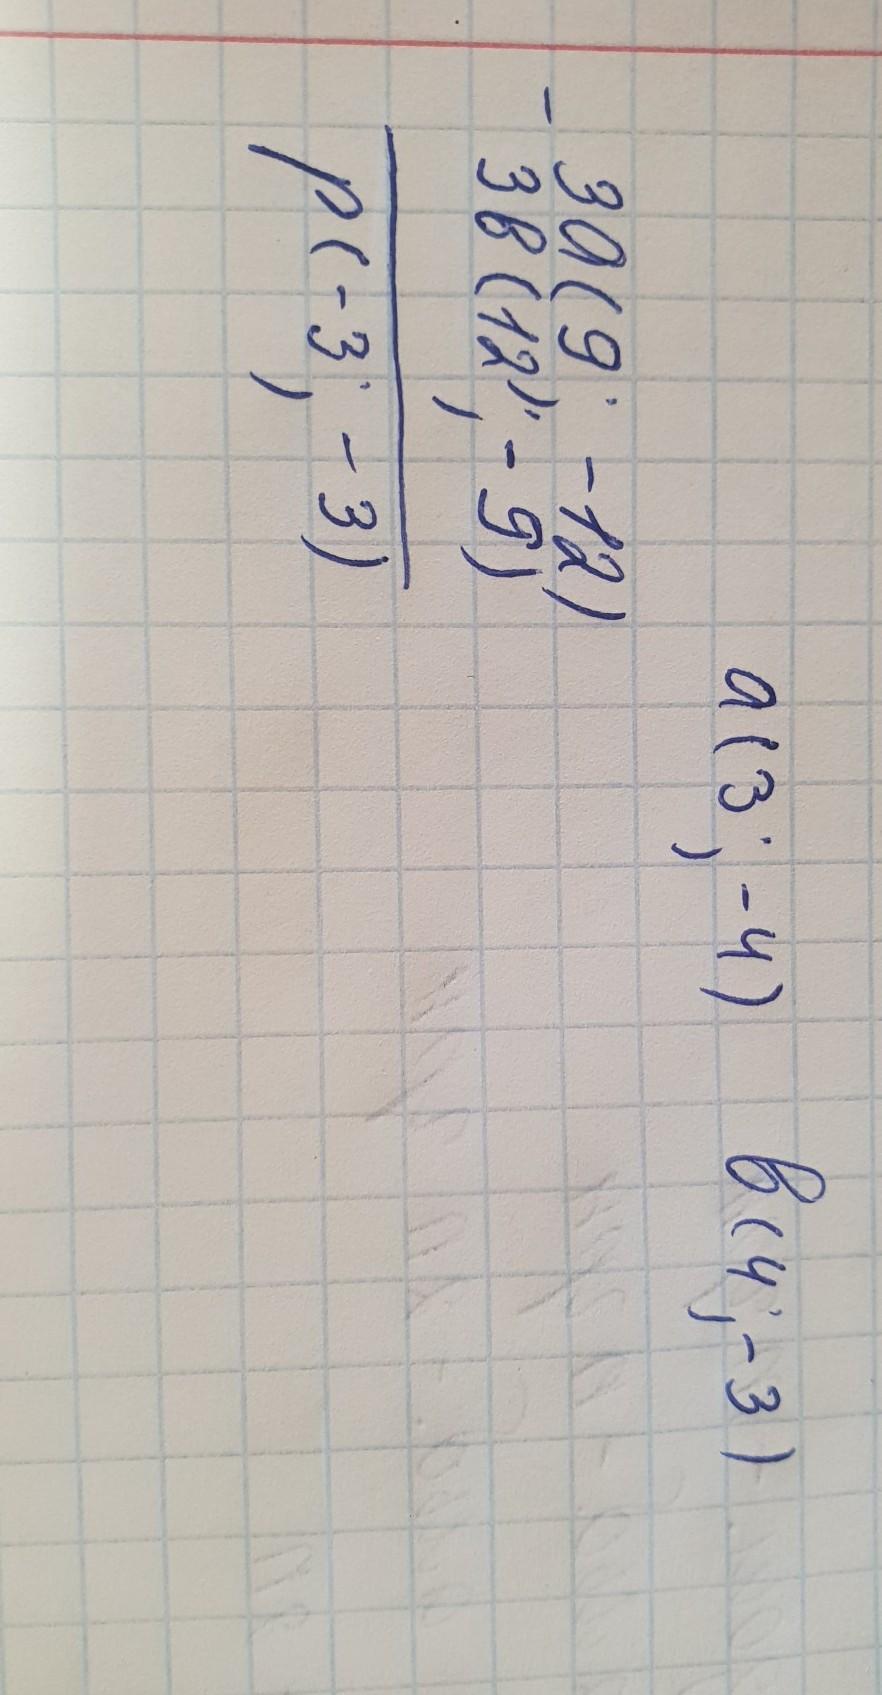 a(3; -4) b(4; -3)
- 3a(9; -12)
3b(12; -9)
p(-3; -3)